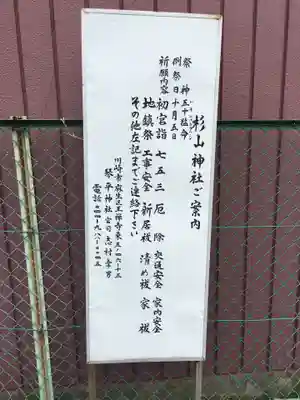 杉山神社ご案内
祭神 五十猛命
例祭日 十月五日
祈願内容
初宮詣 七五三 厄除 交通安全 家内安全
地鎮祭 工事安全 新居祓 清め祓 家祓
その他左記までご連絡下さい
川崎市麻生区王禅寺東五ノ四六ノ十三
琴平神社宮司 志村幸男